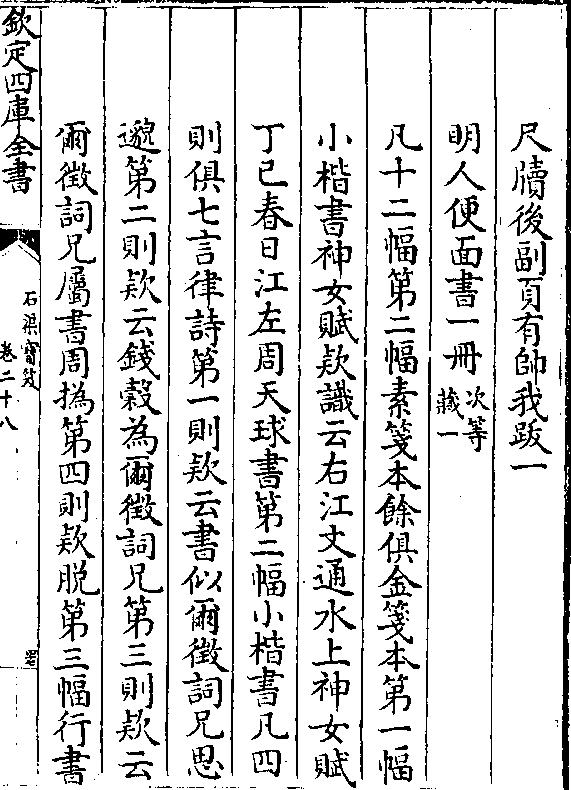 尺牘後副頁有帥我跋一
明人便面書一冊次等藏一
凡十二幅第二幅素箋本餘俱金箋本第一幅
小楷書神女賦欵識云右江文通水上神女賦
丁巳春日江左周天球書第二幅小楷書凡四
則俱七言律詩第一則欵云書似爾徵詞兄思
邈第二則欵云錢榖為爾徵詞兄第三則欵云
爾徵詞兄屬書周撝第四則欵脱第三幅行書
欽定四庫全書
石渠寳笈
卷二十八